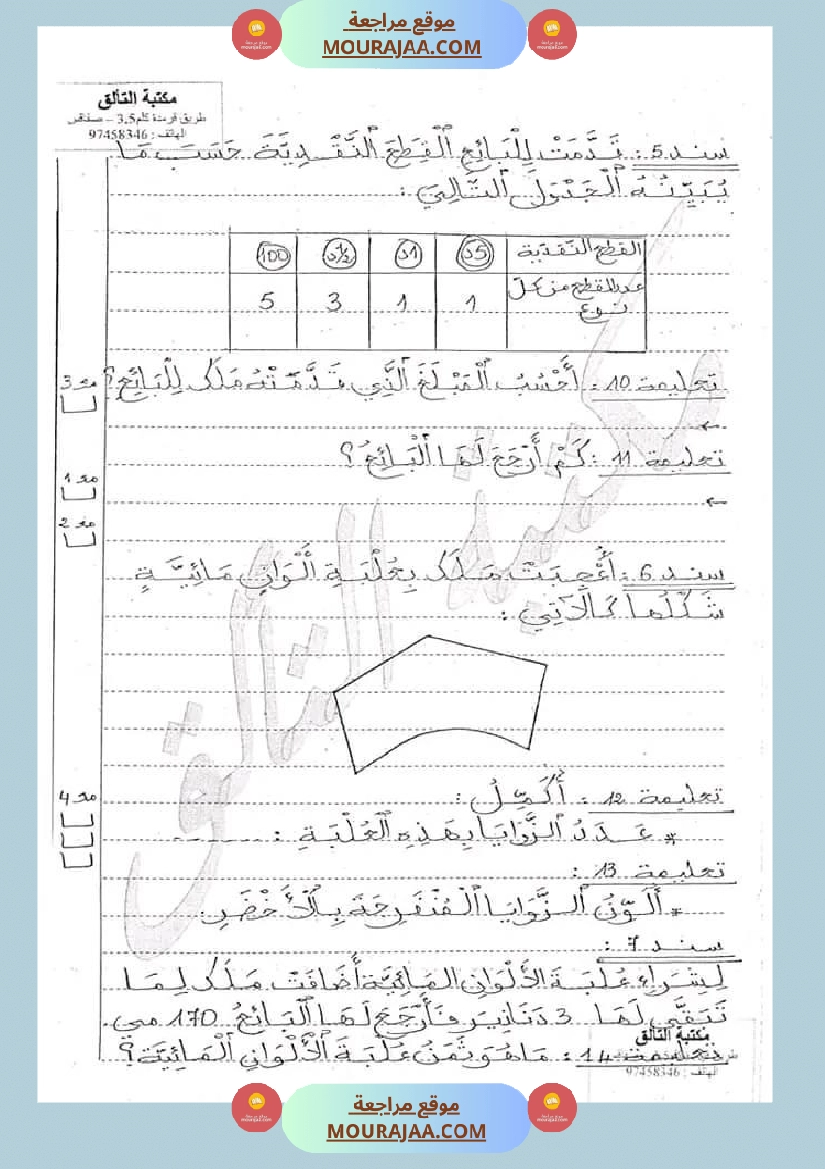 موقع مراجعة
MOURAJAA.COM
مكتبة التألق
طريق قرمدة كلم3,5 – صفاقس
الهاتف : 97458346
سند 5 : قَدَّمَتْ لِلْبَائِعِ ٱلْقِطَعَ ٱلنَّقْدِيَّةَ حَسَبَ مَا
يُبَيِّنُهُ ٱلْجَدْوَلُ ٱلتَّالِي :
القطع النقدية 5د 1د ½د 100
عدد القطع من كل نوع 1 1 3 5
تعليمة 10 : أَحْسُبُ ٱلْمَبْلَغَ ٱلَّذِي قَدَّمَتْهُ مَلَاك لِلْبَائِعِ؟
مع 3
←
تعليمة 11 : كَمْ أَرْجَعَ لَهَا ٱلْبَائِعُ؟
مع 1
←
مع 2
سند 6 : أُعْجِبَتْ مَلَاك بِعُلْبَةِ أَلْوَانٍ مَائِيَّةٍ
شَكْلُهَا كَالآتِي :
تعليمة 12 : أُكَمِّلُ :
مع 4
* عَدَدُ ٱلزَّوَايَا بِهَذِهِ ٱلْعُلْبَةِ : --------
تعليمة 13 :
* أُلَوِّنُ ٱلزَّوَايَا ٱلْمُنْفَرِجَةَ بِٱلْأَخْضَرِ.
سند 7 :
لِشِرَاءِ عُلْبَةَ الأَلْوَانِ المَائِيَّةِ أَضَافَتْ مَلَاك لِمَا
تَبَقَّى لَهَا 3 دَنَانِيرَ فَأَرْجَعَ لَهَا ٱلْبَائِعُ 170 مي.
تعليمة 14 : مَا هُوَ ثَمَنُ عُلْبَةَ ٱلْأَلْوَانِ ٱلْمَائِيَّةِ؟
مكتبة التألق
الهاتف : 97458346
موقع مراجعة
MOURAJAA.COM